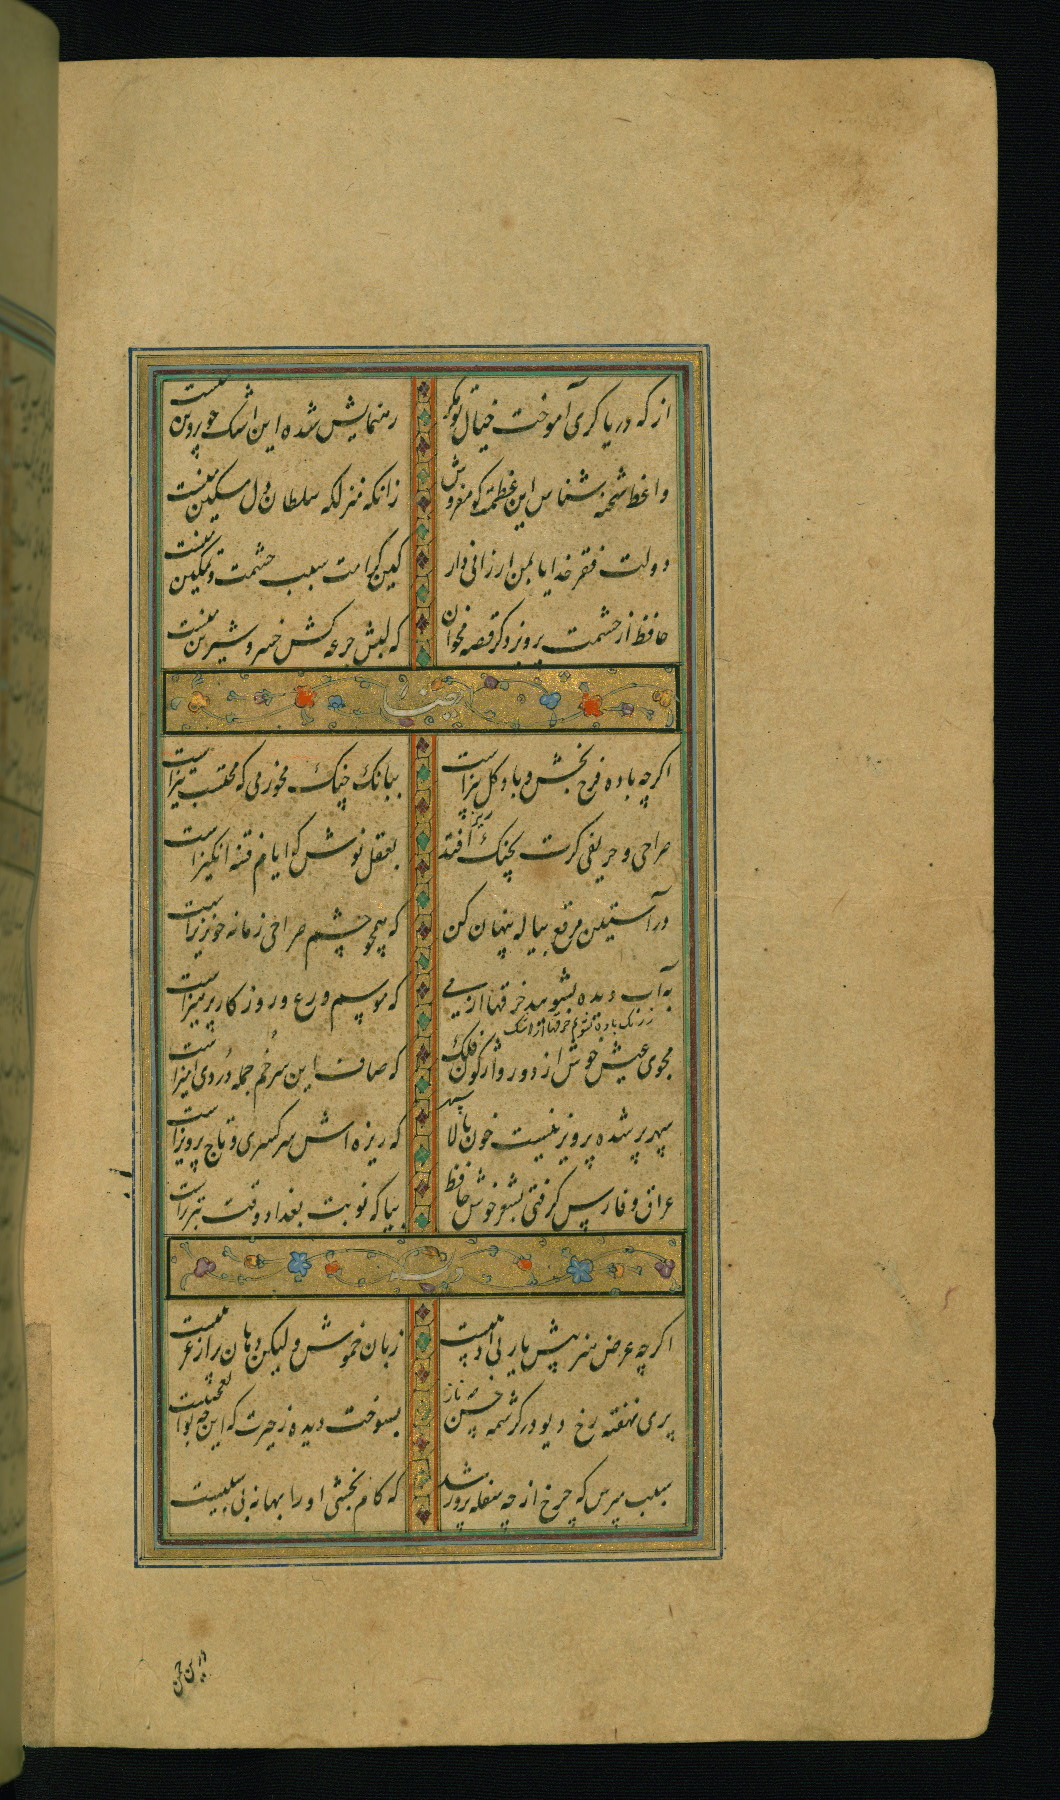 از که دریا کری آموخت خیال تو مگر رهنمایش شده این اشک چو پروین منست
واعظ شحنه شناس این عظمت کو مفروش زانکه منزلکه سلطان دل مسکین منست
دولت فقر خدایا بمن ارزانی دار کین کرامت سبب حشمت و تمکین منست
حافظ از حشمت پرویز دکر قصه مخوان که لبش جرعه کش خسرو شیرین منست
ایضا
اکرچه باده فرح بخش و باد کل بیزاست ببانک چنک مخور می که محتسب تیزاست
صراحی و حریفی کرت بچنک افتد بعقل نوش که ایام فتنه انکیزاست
در آستین مرقع پیاله پنهان کن که همچو چشم صراحی زمانه خونریزاست
به آب دیده بشویید خرقها از می که موسم ورع و روز کار پرهیزاست
ز رنک باده بشویم خرقها در اشک
مجوی عیش خوش از دور واژکون فلک که صاف این سر خم جمله دردی آمیزاست
سپهر بر شده پرویز نیست خون پالا که ریزه اش سر کسری و تاج پرویزاست
عراق و فارس کرفتی بشعر خوش حافظ بیا که نوبت بغداد و وقت تبریزاست
وله
اکرچه عرض هنر پیش یار بی ادبیست زبان خموش ولیکن دهان پر از عربیست
پری نهفته رخ و دیو در کرشمه حسن بسوخت دیده ز حیرت که این چه بوالعجبیست
سبب مپرس که چرخ از چه سفله پرور شد که کام بخشی او را بهانه بی سببیست